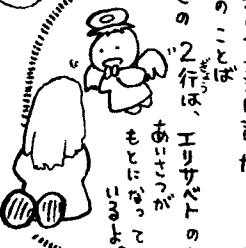 のことば
の2行は、エリサベトの
ぎょう
あいさつが
もとになって
いるよ